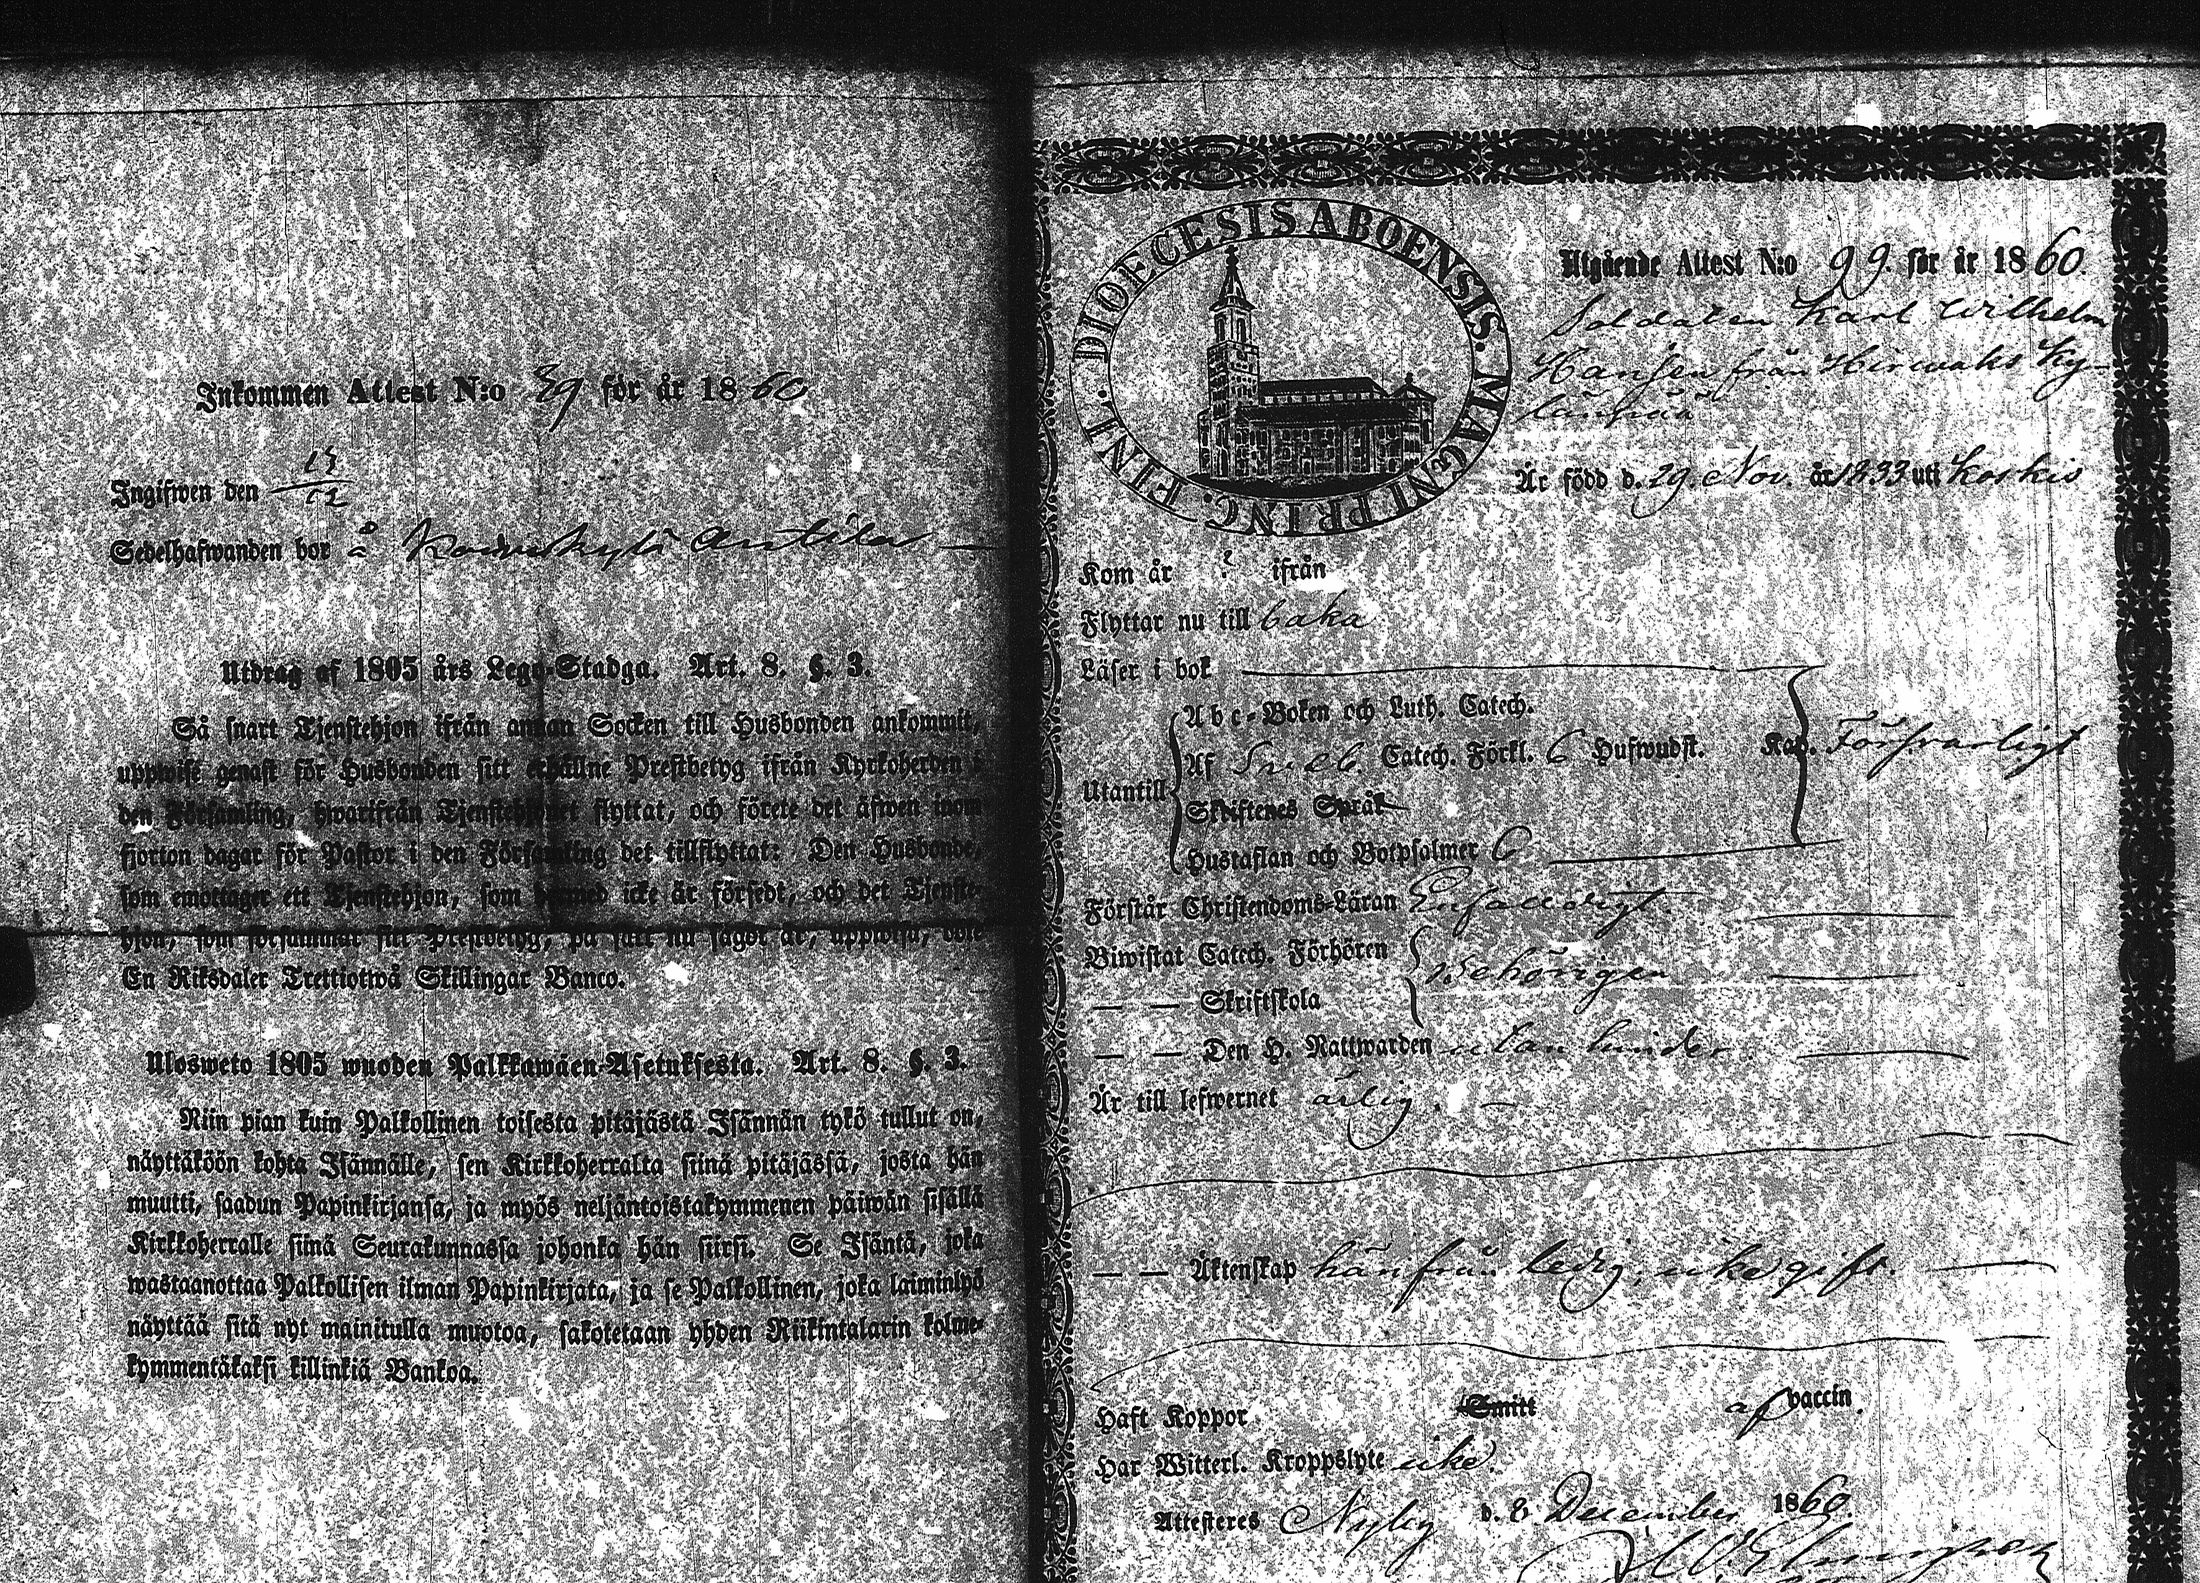 Inkommen Attest N:o 89 för år 1860
Ingifwen den 15/12
Sedelhafwanden bor å Koivukylä Anttila
Utdrag af 1805 års Lego-Stadga. Art. 8. §. 3.
Så snart Tjenstehjon ifrån annan Socken till Husbonden ankommit,
uppwise genast för Husbonden sitt erhållne Prestbetyg ifrån Kyrkoherden i
den Församling, hwarifrån Tjenstehjonet flyttat, och förete det äfwen inom
fjorton dagar för Pastor i den Församling det tillflyttat: Den Husbonde,
som emottager ett Tjenstehjon, som dermed icke är försedt, och det Tjenste-
hjon, som försummar sitt Prestbetyg, på sätt nu sagdt är, uppwisa, böte
En Riksdaler Trettiotwå Skillingar Banco.
Ulosweto 1805 wuoden Palkkawäen-Asetuksesta. Art. 8. §. 3.
Niin pian kuin Palkollinen toisesta pitäjästä Isännän tykö tullut on,
näyttäköön kohta Isännälle, sen Kirkkoherralta siinä pitäjässä, josta hän
muutti, saadun Papinkirjansa, ja myös neljäntoistakymmenen päiwän sisällä
Kirkkoherralle siinä Seurakunnassa johonka hän siirsi. Se Isäntä, joka
wastaanottaa Palkollisen ilman Papinkirjata, ja se Palkollinen, joka laiminlyö
näyttää sitä nyt mainitulla muotoa, sakotetaan yhden Riikintalarin kolme-
kymmentäkaksi killinkiä Bankoa.
DIOECESIS ABOENSIS. MAGNI PRINC. FINL.
Utgående Attest N:o 99. för år 1860
Soldaten Karl Wilhelm
Hansen från Hirwaks Ky-
Är född d. 29 Nov. år 1833 uti Koskis
Kom år ? ifrån
Flyttar nu till baka
Läser i bok
Abc-Boken och Luth. Catech.
Utantill Af Sveb. Catech. Förkl. 6 Hufwudst. Kap. Försvarligt
Skriftenes Språk
Hustaflan och Botpsalmer 6
Förstår Christendoms-Läran Enfaldigt.
Biwistat Catech. Förhören Behörigen
— — Skriftskola
— — Den H. Nattwarden utan hinder
Är till lefwernet ärlig.
— — Äktenskap härifrån ledig, icke gift.
Haft Koppor Smitt af vaccin.
Har Witterl. Kroppslyte icke.
Attesteres Nyby d. 8 December 1860.